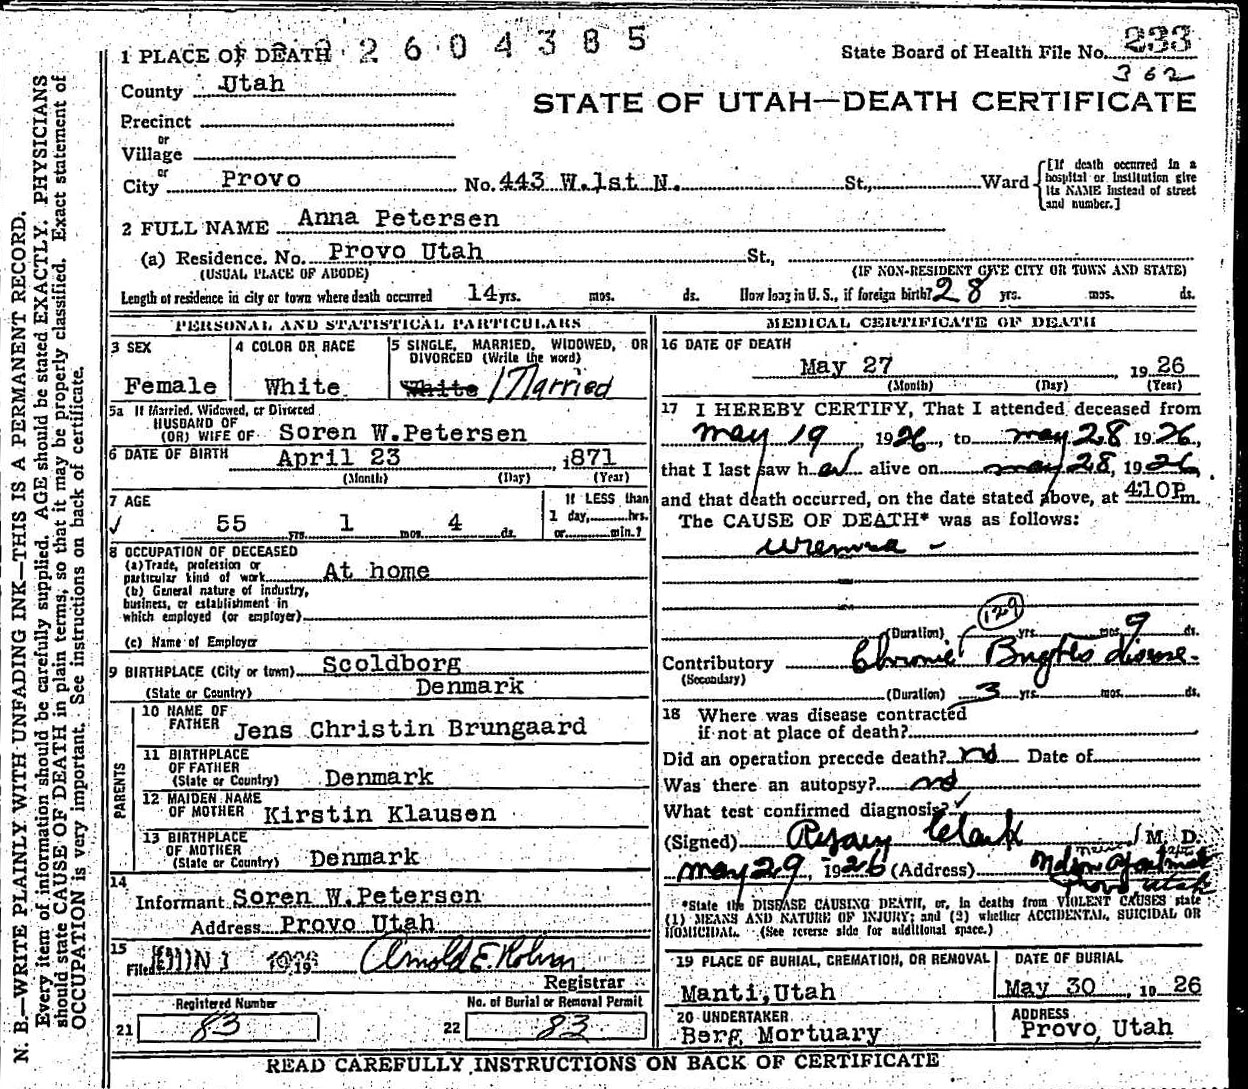 N. B.—WRITE PLAINLY WITH UNFADING INK—THIS IS A PERMANENT RECORD.
Every item of information should be carefully supplied. AGE should be stated EXACTLY. PHYSICIANS
should state CAUSE OF DEATH in plain terms, so that it may be properly classified. Exact statement of
OCCUPATION is very important. See instructions on back of certificate.
2604385
1 PLACE OF DEATH
State Board of Health File No. 233
362
County Utah
STATE OF UTAH—DEATH CERTIFICATE
Precinct
or
Village
or
City Provo No. 443 W.1st N. St., Ward
[If death occurred in a
hospital or institution give
its NAME instead of street
and number.]
2 FULL NAME Anna Petersen
(a) Residence. No. Provo Utah St.,
(USUAL PLACE OF ABODE) (IF NON-RESIDENT GIVE CITY OR TOWN AND STATE)
Length of residence in city or town where death occurred 14 yrs. mos. ds. How long in U. S., if foreign birth? 28 yrs. mos. ds.
PERSONAL AND STATISTICAL PARTICULARS
3 SEX
Female
4 COLOR OR RACE
White
5 SINGLE, MARRIED, WIDOWED, OR
DIVORCED (Write the word)
White Married
5a If Married, Widowed, or Divorced
HUSBAND OF
(OR) WIFE OF Soren W.Petersen
6 DATE OF BIRTH April 23, 1871
(Month) (Day) (Year)
7 AGE
55 yrs. 1 mos. 4 ds.
If LESS than
1 day, hrs.
or min.?
8 OCCUPATION OF DECEASED
(a) Trade, profession or
particular kind of work At home
(b) General nature of industry,
business, or establishment in
which employed (or employer)
(c) Name of Employer
9 BIRTHPLACE (City or town) Scoldborg
(State or Country) Denmark
PARENTS
10 NAME OF
FATHER Jens Christin Brungaard
11 BIRTHPLACE
OF FATHER
(State or Country) Denmark
12 MAIDEN NAME
OF MOTHER Kirstin Klausen
13 BIRTHPLACE
OF MOTHER
(State or Country) Denmark
14
Informant Soren W.Petersen
Address Provo Utah
15
Filed JUN 1 1926 19 Arnold E. Holm
Registrar
Registered Number
21 83
No. of Burial or Removal Permit
22 83
MEDICAL CERTIFICATE OF DEATH
16 DATE OF DEATH
May 27, 1926
(Month) (Day) (Year)
17 I HEREBY CERTIFY, That I attended deceased from
May 19, 1926, to May 28 1926,
that I last saw her alive on May 28, 1926
and that death occurred, on the date stated above, at 4:10P m.
The CAUSE OF DEATH* was as follows:
Uremia -
129
(Duration) yrs. mos. 9 ds.
Contributory Chronic Brights disease.
(Secondary)
(Duration) 3 yrs. mos. ds.
18 Where was disease contracted
if not at place of death?
Did an operation precede death? no Date of
Was there an autopsy? no
What test confirmed diagnosis? ✓
(Signed) Clark M. D.
May 29, 1926 (Address)
Provo Utah
*State the DISEASE CAUSING DEATH, or, in deaths from VIOLENT CAUSES state
(1) MEANS AND NATURE OF INJURY; and (2) whether ACCIDENTAL, SUICIDAL OR
HOMICIDAL. (See reverse side for additional space.)
19 PLACE OF BURIAL, CREMATION, OR REMOVAL
Manti,Utah
DATE OF BURIAL
May 30, 1926
20 UNDERTAKER
Berg Mortuary
ADDRESS
Provo, Utah
READ CAREFULLY INSTRUCTIONS ON BACK OF CERTIFICATE